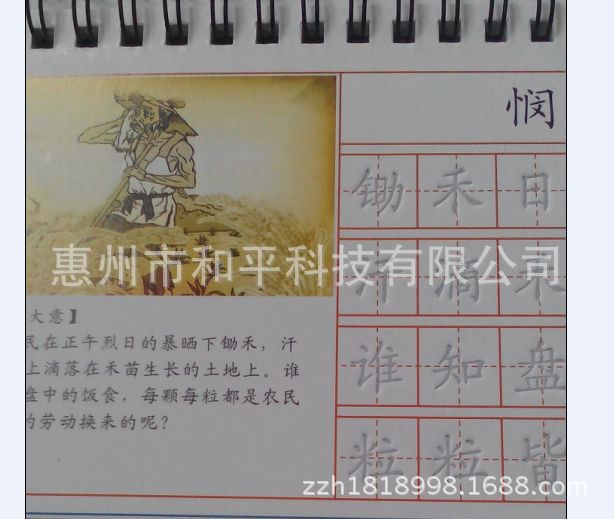 悯
锄禾日
汗滴禾
谁知盘
粒粒皆
大意】
民在正午烈日的暴晒下锄禾，汗
上滴落在禾苗生长的土地上。谁
盘中的饭食，每颗每粒都是农民
的劳动换来的呢？
惠州市和平科技有限公司
zzh1818998.1688.com